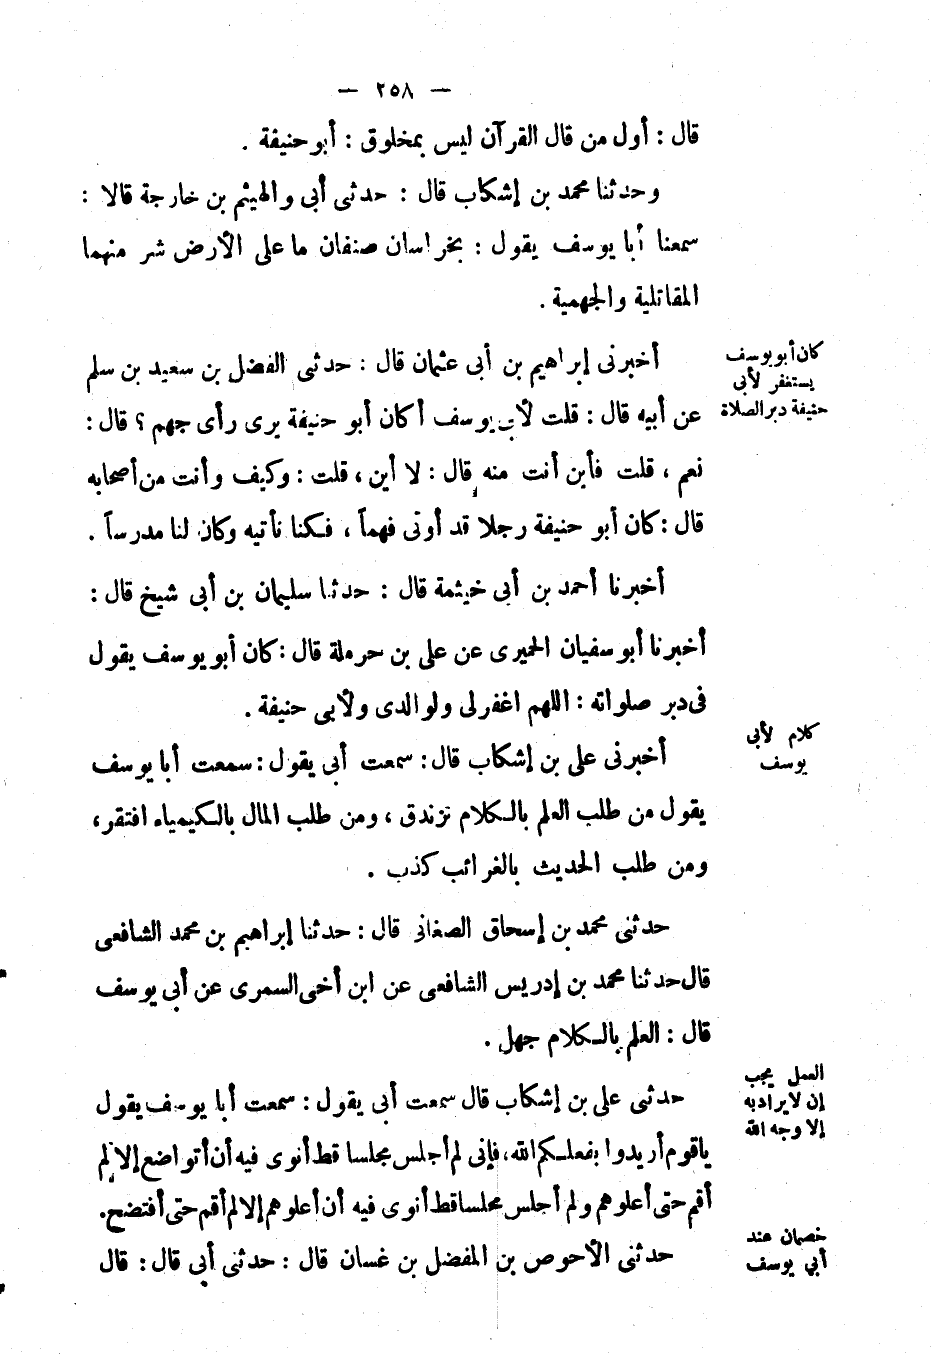 — ٢٥٨ —
قال : أول من قال القرآن ليس بمخلوق : أبو حنيفة .
وحدثنا محمد بن إشكاب قال : حدثنى أبى والهيثم بن خارجة قالا :
سمعنا أبا يوسف يقول : بخراسان صنفان ما على الأرض شر منهما
المقاتلية والجهمية .
كان أبو يوسف
يستغفر لأبى
حنيفة دبر الصلاة
أخبرنى إبراهيم بن أبى عثمان قال : حدثى الفضل بن سعيد بن سلم
عن أبيه قال : قلت لأبى يوسف أكان أبو حنيفة يرى رأى جهم ؟ قال :
نعم ، قلت فأين أنت منه قال : لا أين ، قلت : وكيف وأنت من أصحابه
قال : كان أبو حنيفة رجلا قد أوتى فهماً ، فكنا نأتيه وكان لنا مدرساً .
أخبرنا أحمد بن أبى خيثمة قال : حدثنا سليمان بن أبى شيخ قال :
أخبرنا أبو سفيان الحميرى عن على بن حرملة قال : كان أبو يوسف يقول
فى دبر صلواته : اللهم اغفر لى ولوالدى ولأبى حنيفة .
كلام لأبى
يوسف
أخبرنى على بن إشكاب قال : سمعت أبى يقول : سمعت أبا يوسف
يقول من طلب العلم بالكلام تزندق ، ومن طلب المال بالكيمياء افتقر ،
ومن طلب الحديث بالغرائب كذب .
حدثنى محمد بن إسحاق الصغانى قال : حدثنا إبراهيم بن محمد الشافعى
قال حدثنا محمد بن إدريس الشافعى عن ابن أخى السمرى عن أبى يوسف
قال : العلم بالكلام جهل .
العمل يجب
إن لا يراد به
إلا وجه الله
حدثى على بن إشكاب قال سمعت أبى يقول : سمعت أبا يوسف يقول
ياقوم أريدوا بفعلكم الله ، فإنى لم أجلس مجلسا قط أنوى فيه أن أتواضع إلا لم
أقم حتى أعلوهم ولم أجلس مجلسا قط أنوى فيه أن أعلوهم إلا لم أقم حتى أفتضح .
خصمان عند
أبي يوسف
حدثنى الأحوص بن المفضل بن غسان قال : حدثنى أبى قال : قال